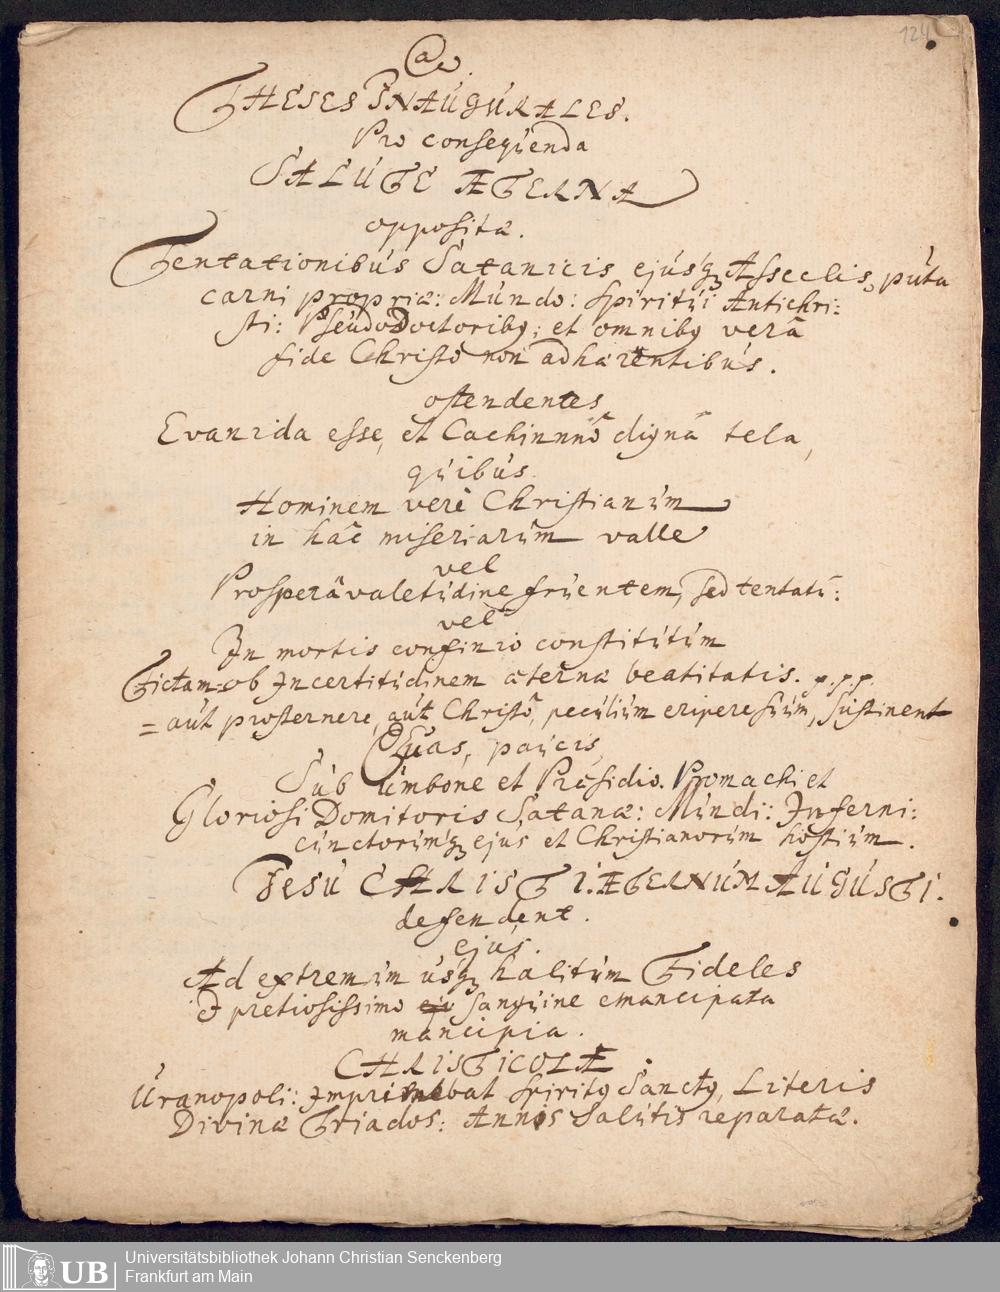 124
THESES INAUGURALES.
Pro consequenda
SALUTE ÆTERNA
oppositæ.
Tentationibus Satanicis ejusq́ Asseclis, puta
carni propriæ: Mundo: spiritui Antichri:
sti: PseudoDoctoribꝯ; et omnibꝯ verâ
fide Christo non adhærentibus.
ostendentes
Evanida esse, et Cachinnnô dignâ tela,
quibus
Hominem verè Christianum
in hâc miseriarum valle
vel
Prosperâ valetudine fruentem, sed tentatū:
vel
In mortis confinio constitutum
Victam ob Incertitudinem æternæ beatitatis. p.p.p.
= aut prosternere, aut Christo, peculium eripere suum, sustinent
Quas, paucis,
Sub umbone et Præsidio. Promachi et
Gloriosi Domitoris Satanæ: Mundi: Inferni:
cunctorumq́ ejus et Christianorum hostium.
JESU CHRISTI. ÆTERNUM AUGUSTI.
defendent.
ejus.
Ad extremum usq́ halitum Fideles
& pretiosissimo sanguine emancipata
mancipia.
CHRISTICOLÆ.
Uranopoli: Imprimebat Spiritꝯ Sanctꝯ, Literis
Divinæ Triados: Annis Salutis reparatæ.
UB
Universitätsbibliothek Johann Christian Senckenberg
Frankfurt am Main